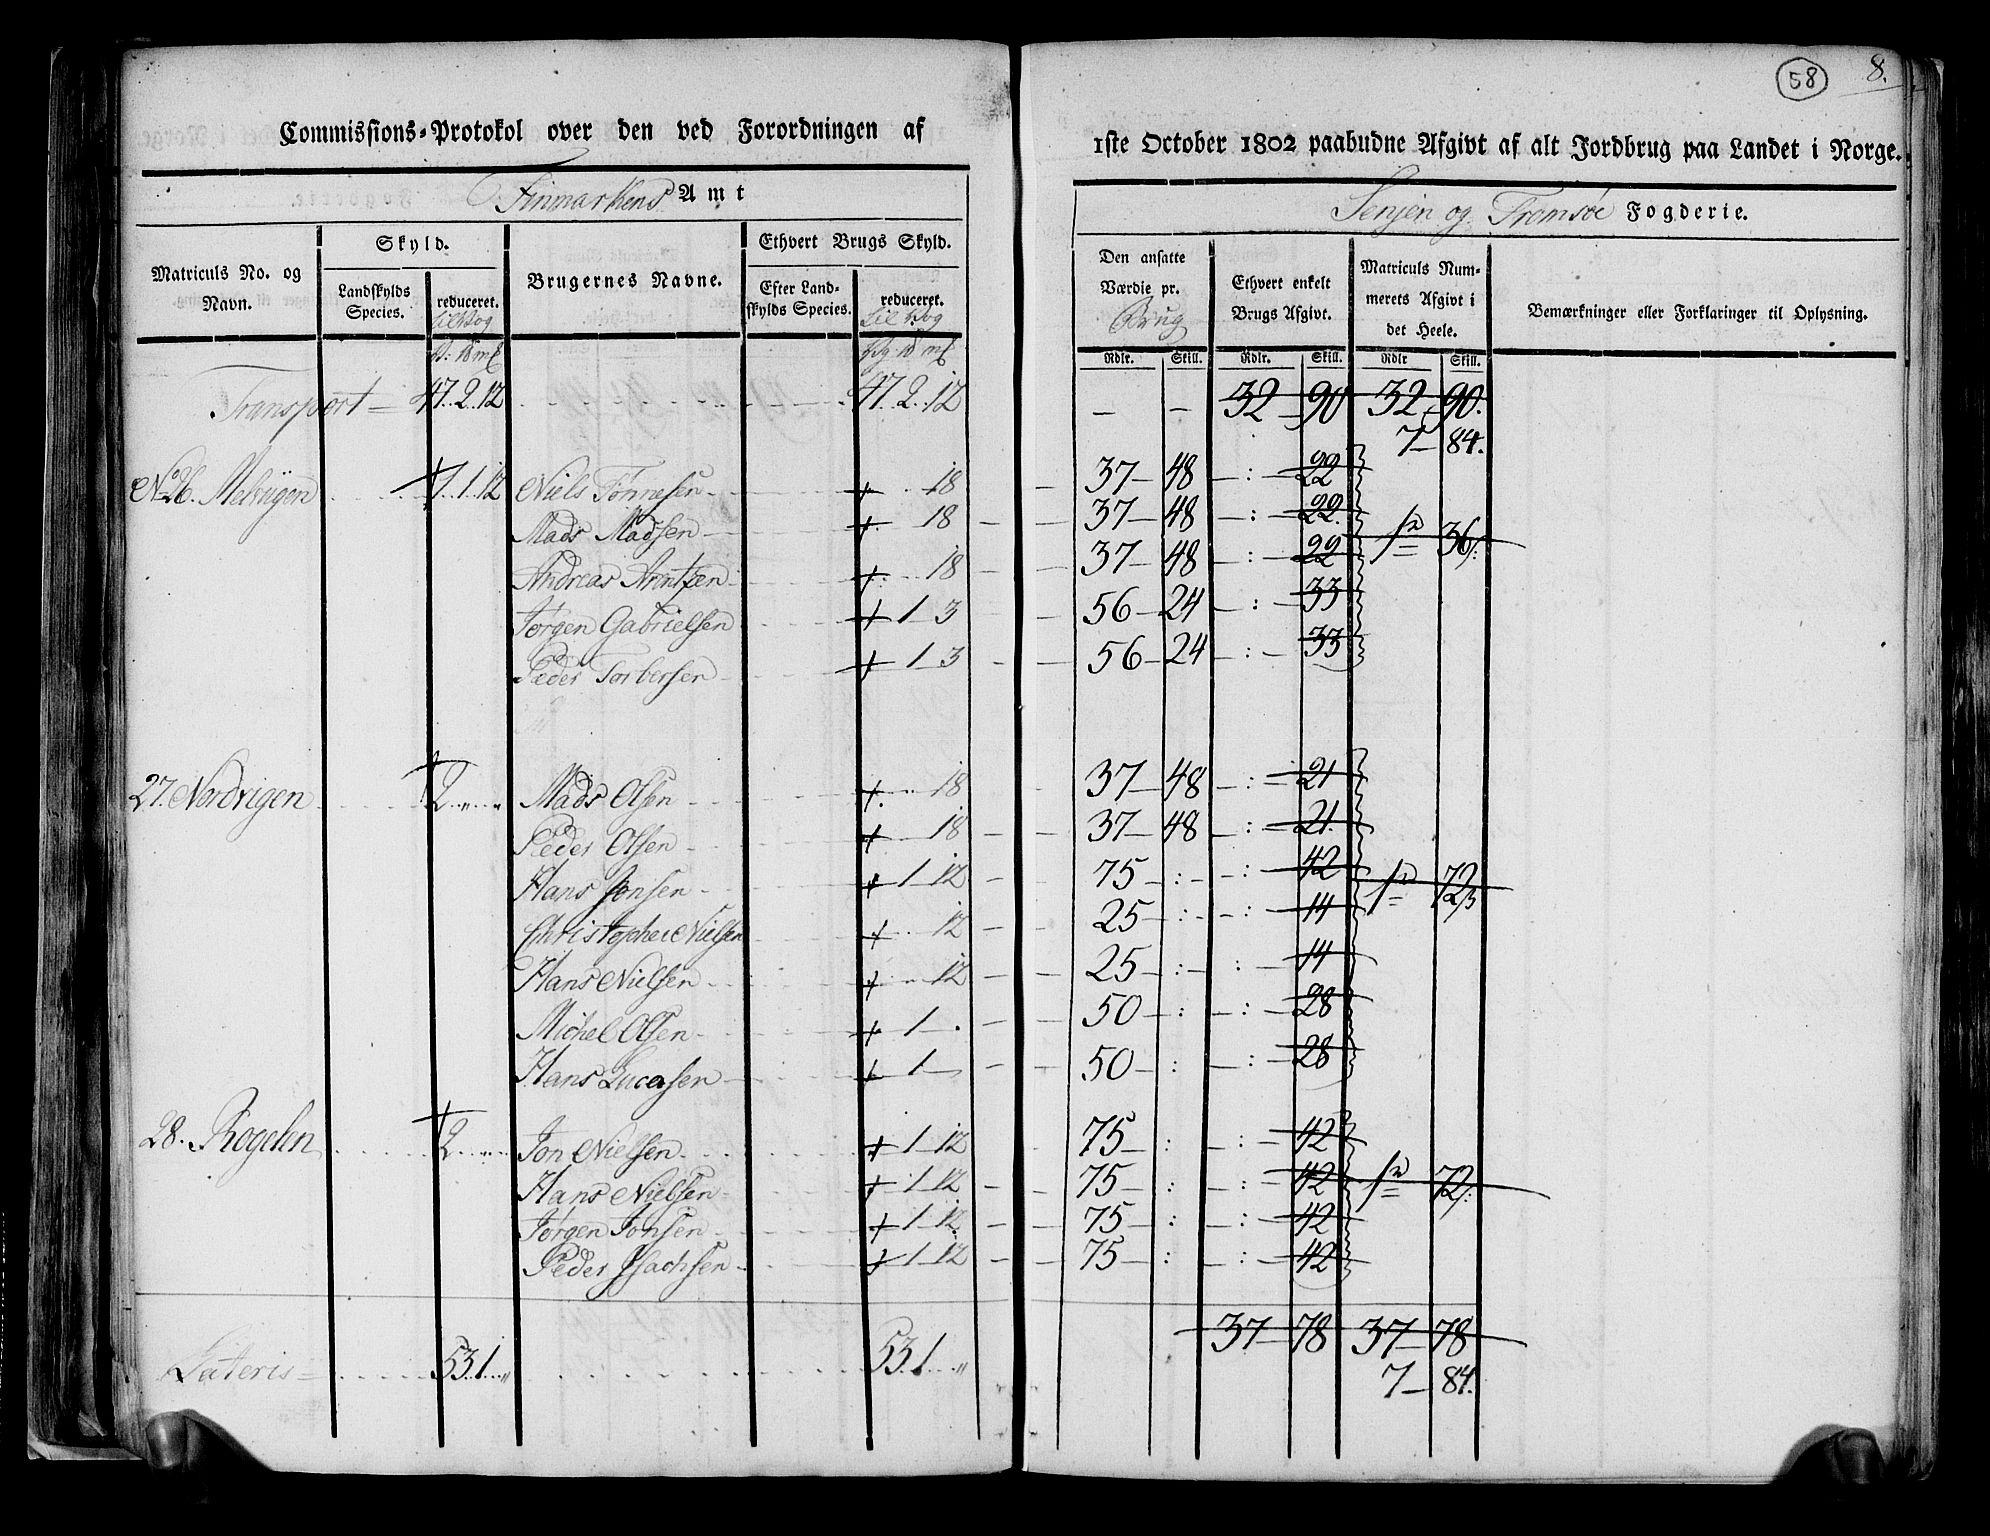 58
8.
Commissions-Protokol over den ved Forordningen af 1ste October 1802 paabudne Afgivt af alt Jordbrug paa Landet i Norge.
Finmarkens Amt
Senjen og Tromsøe Fogderie.
Matriculs No. og Navn.
Skyld.
Landskylds Species.
reduceret.
Brugernes Navne.
Ethvert Brugs Skyld.
Efter Landskylds Species.
reduceret.
Den ansatte Værdie pr. Brug
Ethvert enkelt Brugs Afgivt.
Matriculs Nummerets Afgivt i det Heele.
Bemærkninger eller Forklaringer til Oplysning.
Rdlr. Skill. Rdlr. Skill. Rdlr Skill.
Transport 47. 2. 12 47. 2. 12 32 90 32 90.
7 84.
No 26. 1. 1. 12 Niels Tønnesen 18 37 48 22
Mads Madsen 18 37 48 22 1 36
Andreas Arntzen 18 37 48 22
Jørgen Gabrielsen 1 3 56 24 33
Peder Torbersen 1 3 56 24 33
27. Nordrigen 2 Mads Olsen 18 37 48 21
Peder Olsen 18 37 48 21
Hans Jonsen 1 12 75 42 1 72
Christopher Nielsen 12 25 14
Hans Nielsen 12 25 14
Michel Olsen 1 50 28
Hans Lucasen 1 50 28
28. Rogelen 2 Jon Nielsen 1 12 75 42
Hans Nielsen 1 12 75 42 1 72
Jørgen Jonsen 1 12 75 42
Peder Isachsen 1 12 75 42
Lateris 53. 1. " 53. 1. " 37 78 37 78
7 84.